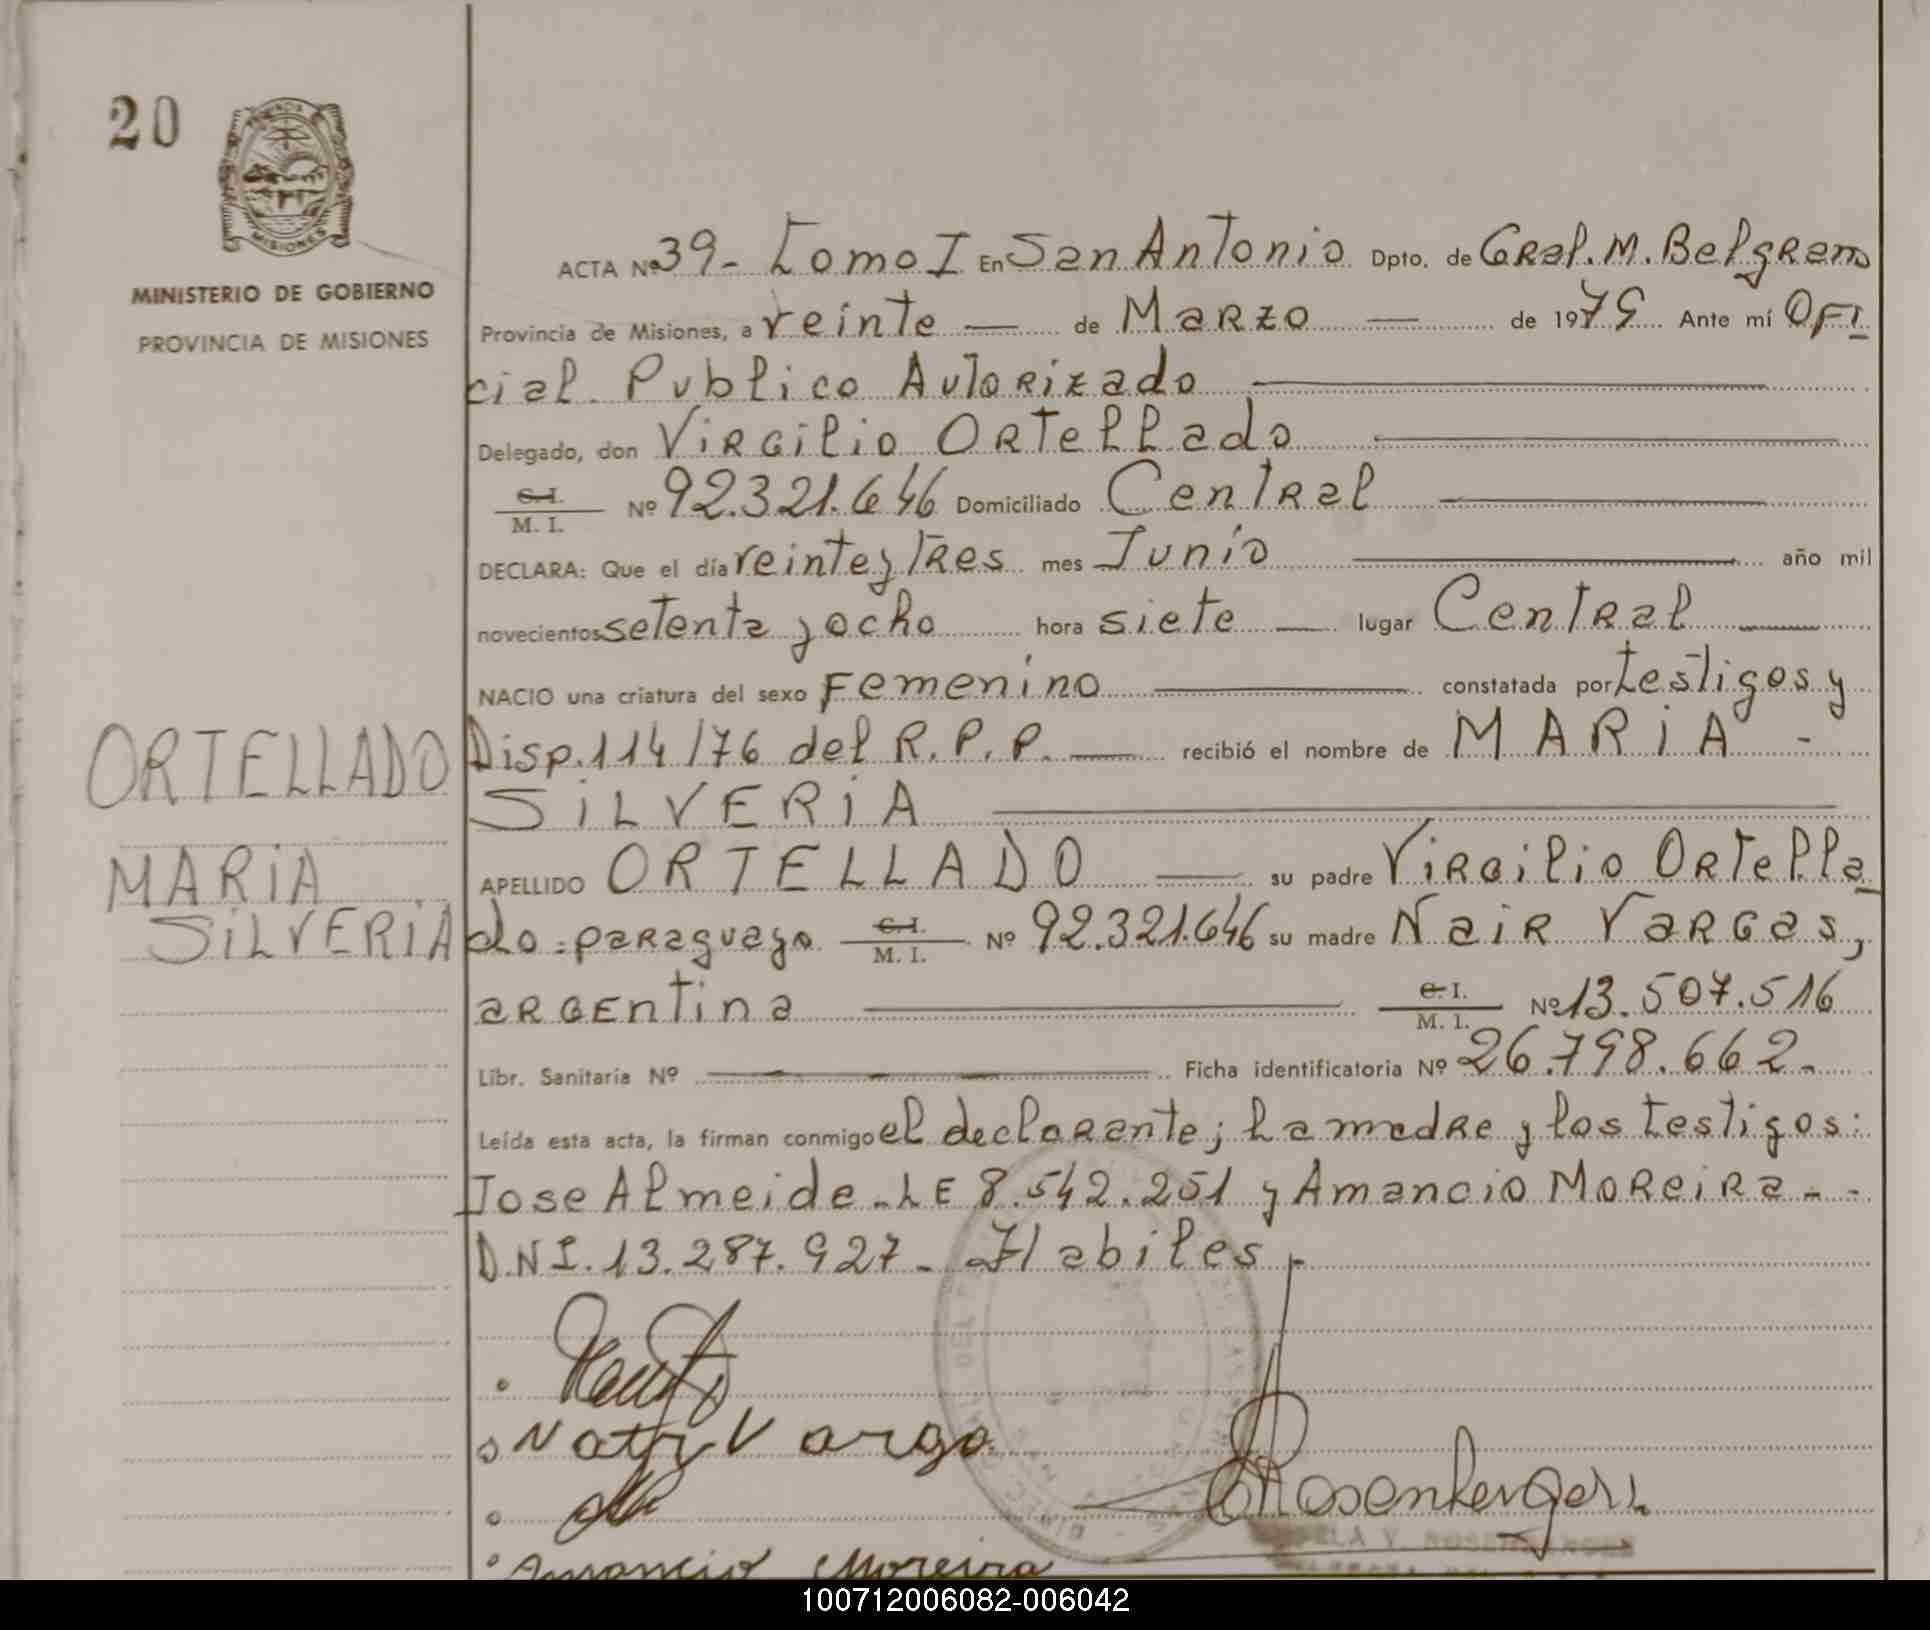 20
MISIONES
MINISTERIO DE GOBIERNO
PROVINCIA DE MISIONES
ACTA Nº 39- Tomo I En San Antonio Dpto. de GRal. M. Belgrano
Provincia de Misiones, a veinte — de MARZO — de 1979 Ante mí OFI
cial Publico Autorizado
Delegado, don Virgilio Ortellado
C.I. M. I. Nº 92.321.646 Domiciliado Central
DECLARA: Que el día veinte y tres mes Junio año mil
novecientos setenta y ocho hora siete — lugar Central
NACIO una criatura del sexo Femenino constatada por testigos y
Disp. 114/76 del R.P.P. — recibió el nombre de MARIA -
SILVERIA
APELLIDO ORTELLADO — su padre Virgilio Ortella
do - paraguayo C.I. M. I. Nº 92.321.646 su madre Nair Vargas,
argentina C.I. M. I. Nº 13.507.516
Libr. Sanitaria Nº Ficha identificatoria Nº 26.798.662-
Leída esta acta, la firman conmigo el declarante; la madre y los testigos:
Jose Almeida - LE 8.542.251 y Amancio Moreira - -
D.N.I. 13.287.927 - Habiles -
ORTELLADO
MARIA
SILVERIA
Nair Varga
Rosenberger
Amancio Moreira
100712006082-006042